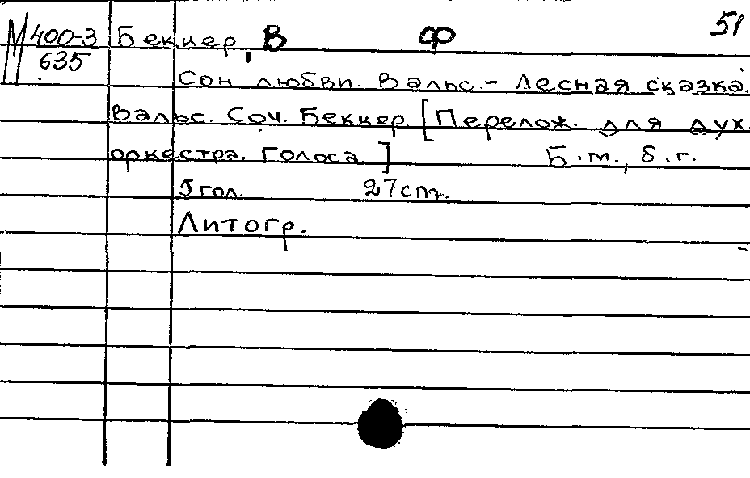 51
М 400-3
635
Беккер, В Ф
Сон любви. Вальс. - Лесная сказка.
Вальс. Соч. Беккер [Перелож. для дух.
оркестра. Голоса] Б.м., б.г.
гол. 27 стр.
Литогр.